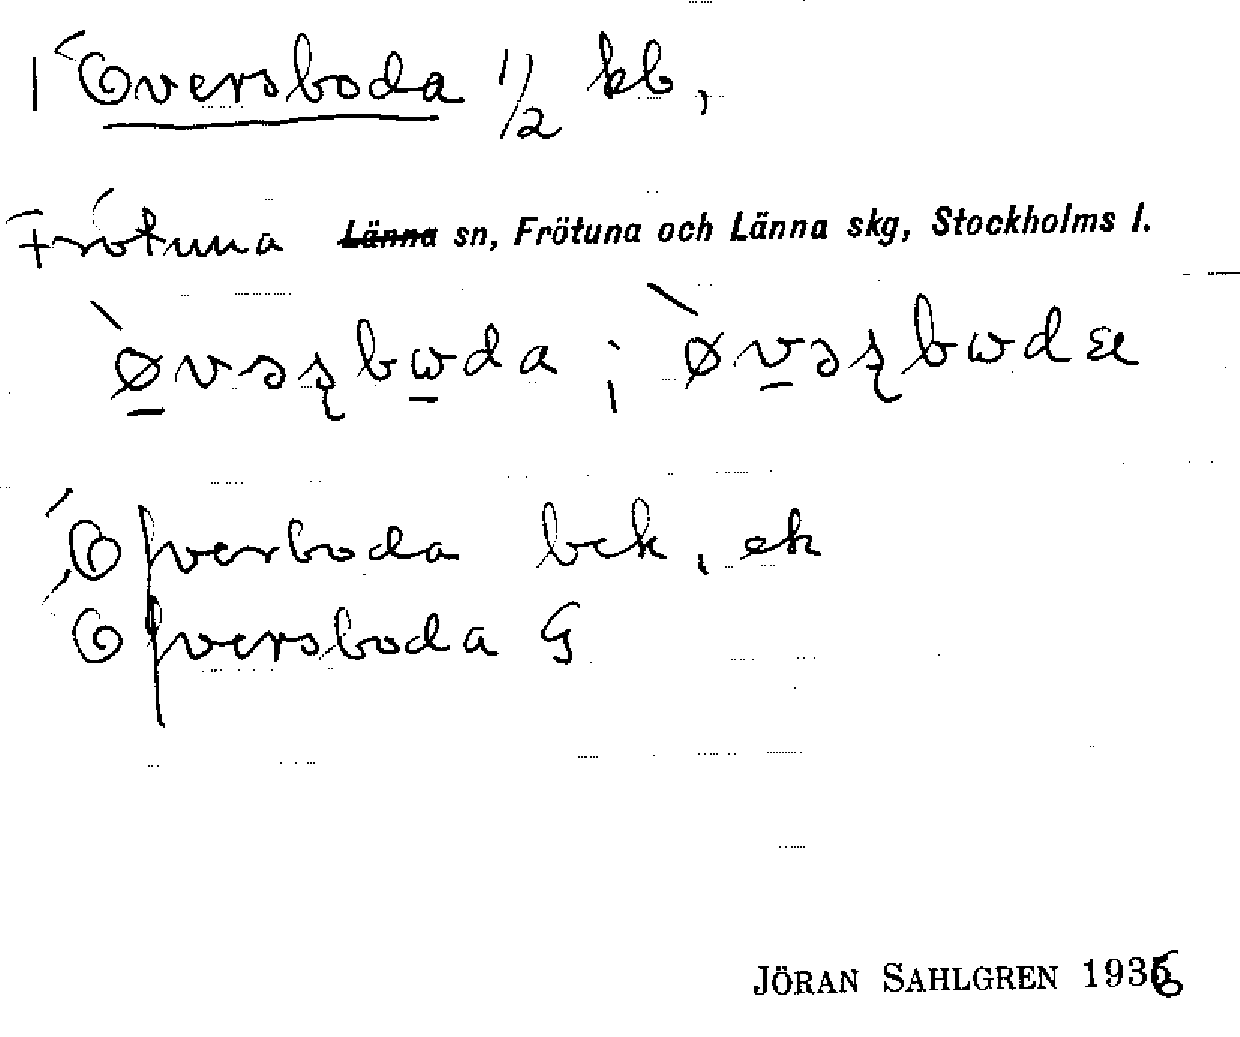 1 Översboda 1/2 kb,
Frötuna Länna sn, Frötuna och Länna skg, Stockholms l.
Öfverboda bck, ek
Öfversboda G
JÖRAN SAHLGREN 1936